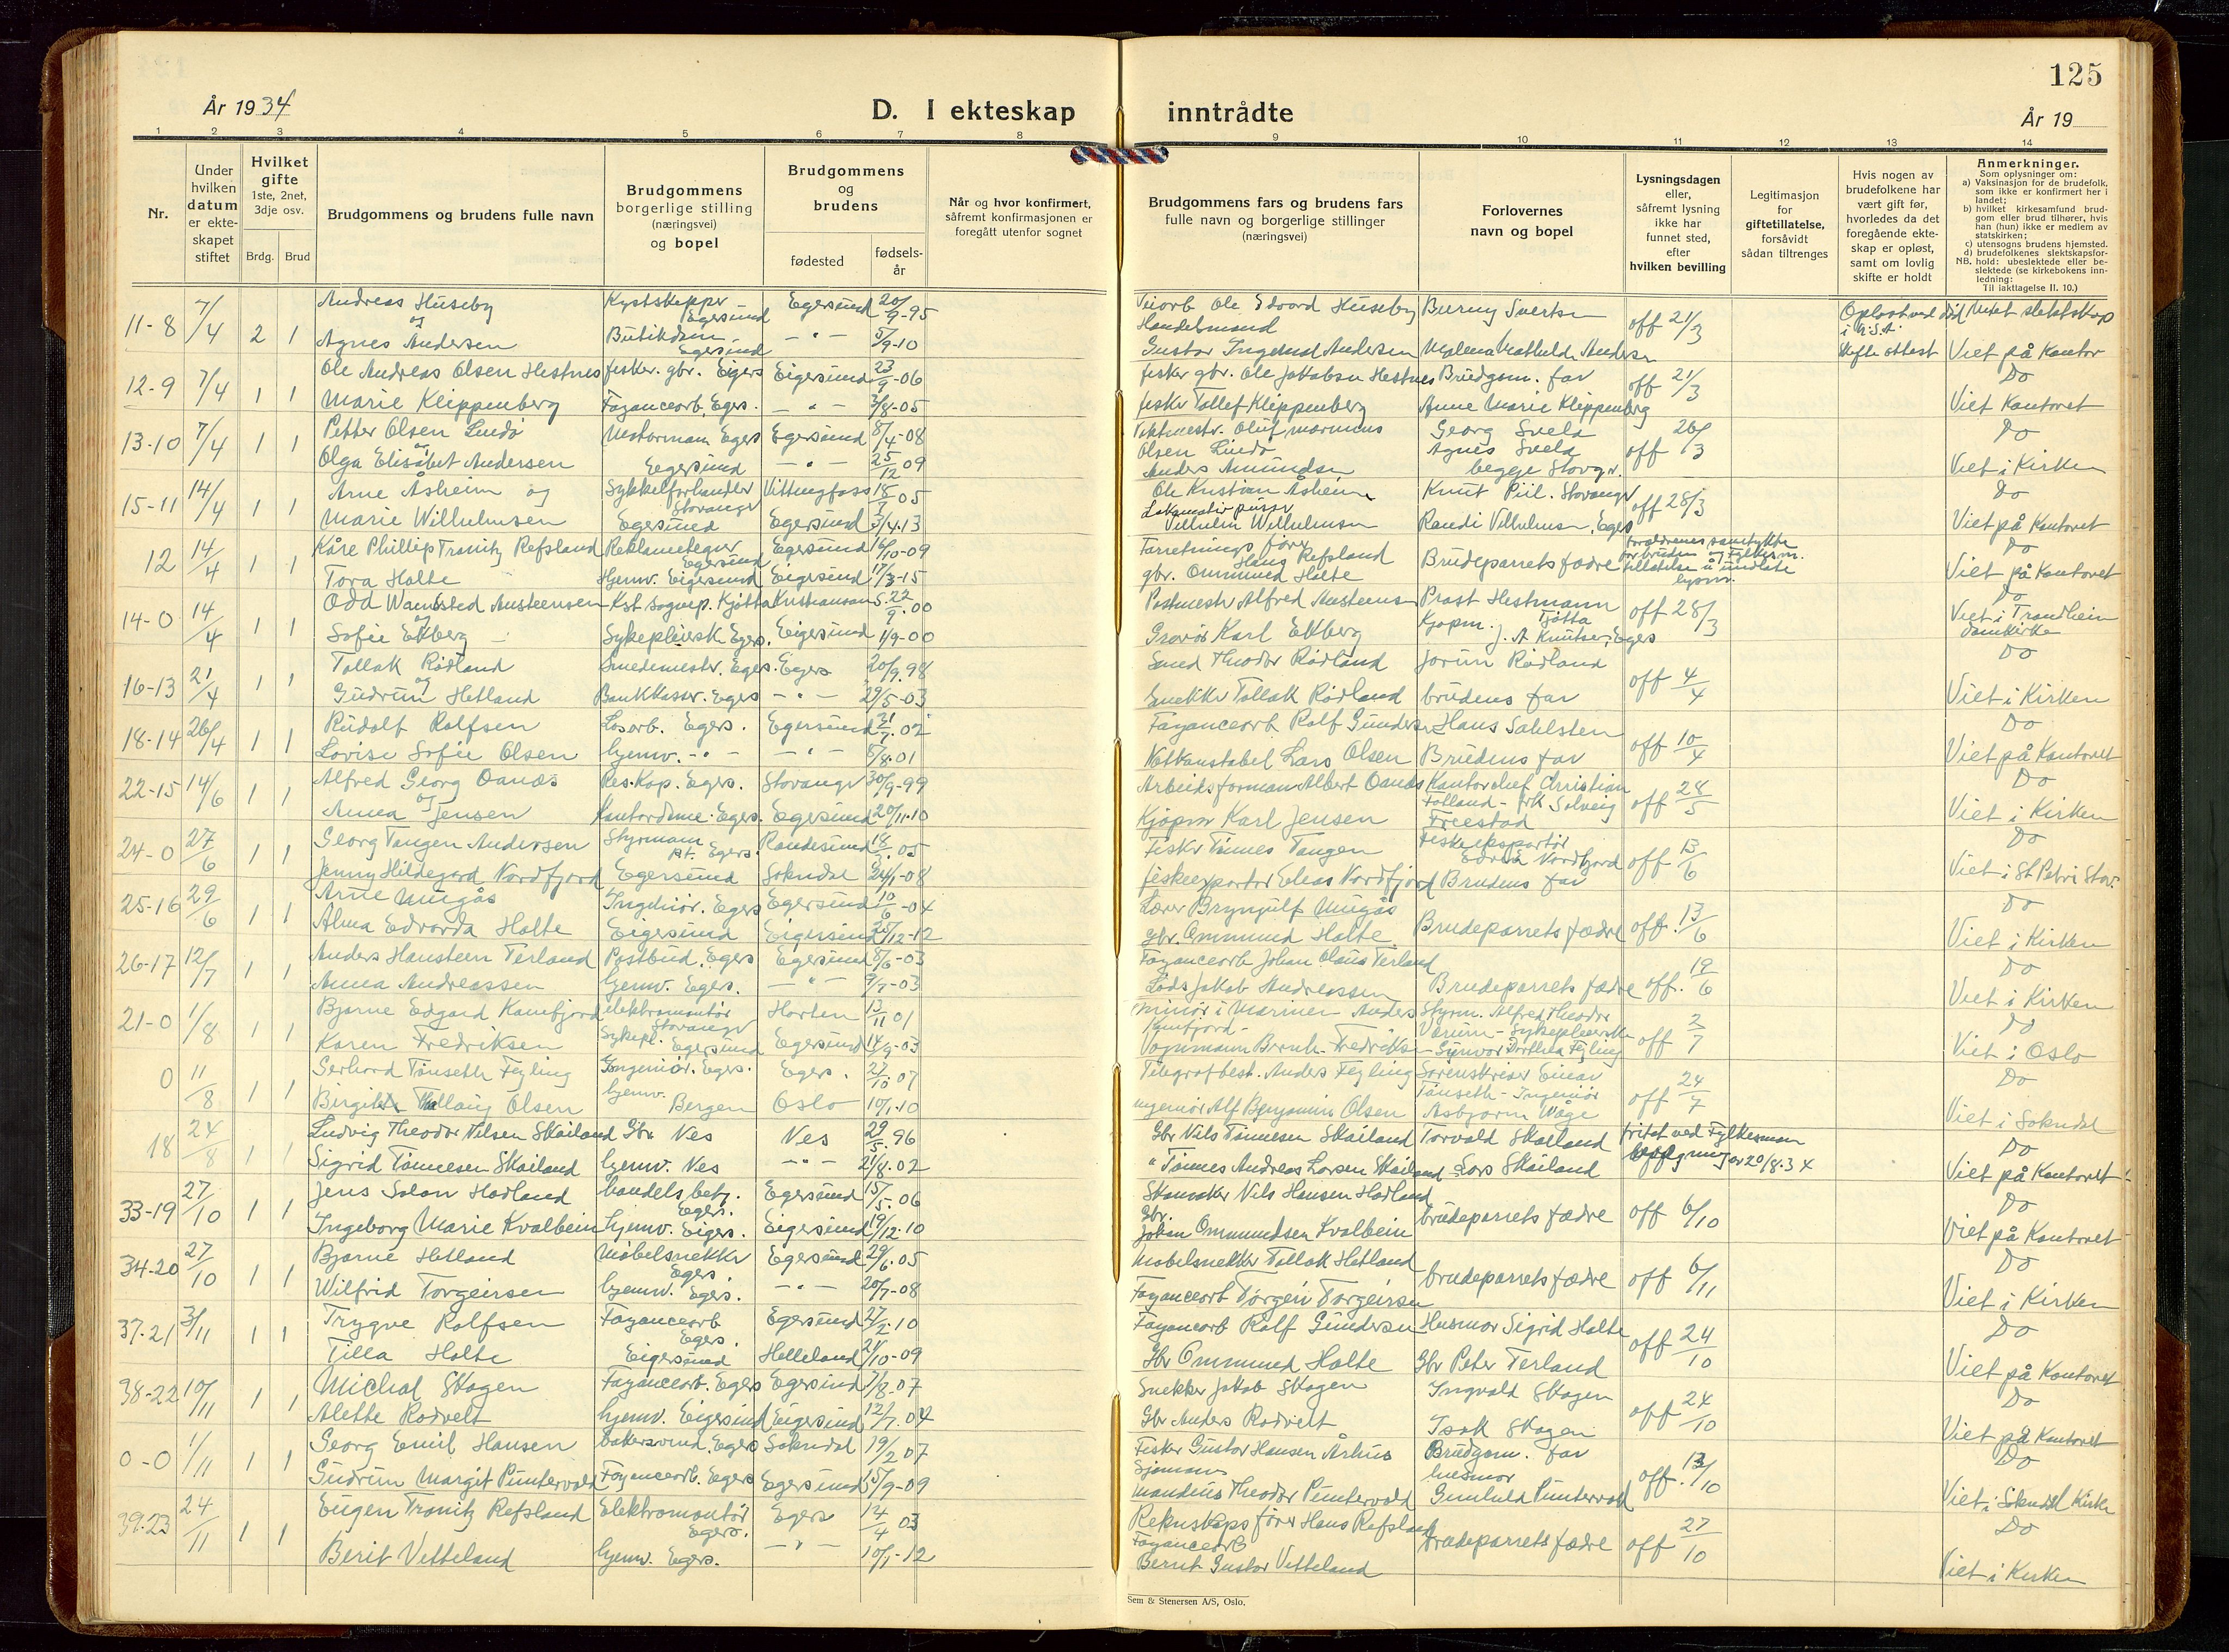 125
År 1934
D. I ekteskap inntrådte
År 19
1 2 3 4 5 6 7 8 9 10 11 12 13 14
Nr.
Under hvilken datum er ekteskapet stiftet
Hvilket gifte
1ste, 2net, 3dje osv.
Brdg. Brud
Brudgommens og brudens fulle navn
Brudgommens borgerlige stilling (næringsvei) og bopel
Brudgommens og brudens
fødested
fødselsår
Når og hvor konfirmert, såfremt konfirmasjonen er foregått utenfor sognet
Brudgommens fars og brudens fars fulle navn og borgerlige stillinger (næringsvei)
Forlovernes navn og bopel
Lysningsdagen eller, såfremt lysning ikke har funnet sted, efter hvilken bevilling
Legitimasjon for giftetillatelse, forsåvidt sådan tiltrenges
Hvis nogen av brudefolkene har vært gift før, hvorledes da det foregående ekteskap er opløst, samt om lovlig skifte er holdt
Anmerkninger.
Som oplysninger om:
a) Vaksinasjon for de brudefolk, som ikke er konfirmert her i landet;
b) hvilket kirkesamfund brudgom eller brud tilhører, hvis han (hun) ikke er medlem av statskirken;
c) utensogns brudens hjemsted.
d) brudefolkenes slektskapsforhold: ubeslektede eller beslektede (se kirkebokens innledning:
NB. Til iakttagelse II. 10.)
11-8 7/4 2 1 Andreas Huseby Kystskipper Egersund Egersund 20/9-95 Ole Edvard Huseby off 21/3
og
Agnes Andersen Butikdame Egersund - " - 5/9-10 Gustav Ingvald Andersen Malena Mathilde Andersen Viet på Kontor
12-9 7/4 1 1 Ole Andreas Olsen Hestnes fisker. gbr. Eigers Eigersund 23/9-06 fisker gbr. Ole Jakobsen Hestnes Brudgom. far off 21/3 Do
Marie Klippenberg Fayancearb. Egers. - " - 3/8-05 fisker Tollef Klippenberg Anne Marie Klippenberg Viet Kontoret
13-10 7/4 1 1 Petter Olsen Lindø Motormann Egers Egersund 8/4-08 Georg Svela off 26/3 Do
og
Olga Elisabet Andersen Egersund - " - 25/12 09 Anders Amundsen Agnes Svela begge Stavgr. Viet i Kirken
15-11 14/4 1 1 Arne Åsheim og Sykkelforhandler Stavanger Vittingfoss 18/9 05 Ole Kristian Åsheim Knut Piil. Stavanger off 28/3 Do
Marie Wilhelmsen Egersund Egersund 3/4.13 Vilhelm Wilhelmsen Randi Vilhelmsen, Egers Viet på Kontoret
12 14/4 1 1 Kåre Phillip Tranitz Refsland Reklametegner Egersund Egersund 16/10-09 Forretningsfører Haug Refsland Brudeparrets fædre Do
Tora Holte Hjemv. Eigersund Eigersund 17/3-15 gbr. Ommund Holte Viet på Kontoret
14-0 14/4 1 1 Odd Wamsted Austeensen Kst sognep. Kjøtta Kristiansan S. 22/9.00 Postmestr Alfred Austeens Prost Hestmann Tjøtta off 28/3 Do
og
Sofie Ekberg Sykepleiersk Egers. Eigersund 1/9-00 Gravør Karl Ekberg Kjøpm. J. A. Knutsen, Egers Viet i Trondheim Domkirke
16-13 21/4 1 1 Tollak Rødland Smedemestr. Egers. Egers 20/9.98 Smed Theodor Rødland Jorun Rødland off 4/4 Do
og
Gudrun Hetland Bankkasser. Egers - " - 29/5-03 Snekker Tollak Rødland brudens far Viet i Kirken
18-14 26/4 1 1 Rudolf Rolfsen Løsarb. Egers. Egersund 31/7. 02 Fayancearb Rolf Gundersen Hans Sahlsten off 10/4 Do
Lovise Sofie Olsen hjemv. - " - - " - 8/8.01 Lars Olsen Brudens far Viet på Kontoret
22-15 14/6 1 1 Alfred Georg Oanæs Res. Kap. Egers. Stavanger 30/9-99 Arbeidsformann Albert Oanæs Kontorchef Christian Tolland - frk Solveig Freestad off 28/5 Do
og
Anna Jensen Kontordame. Egers. Egersund 20/11-10 Kjøpm Karl Jensen Viet i Kirken
24-0 27/6 1 1 Georg Tangen Andersen Styrmann pt. Egers. Randesund 05 Fisker Tønnes Tangen off 13/6 Do
Jenny Hildegard Nordfjord Egersund Sokndal 24/1-08 fiskeexportør Elias Nordfjord Brudens far Viet i St Petri Stav.
25-16 29/6 1 1 Arne Mugås Ingeniør. Egers Egersund 10/6-04 Lærer Brynjulf Mugås Brudeparrets fædre off. 13/6 Do
Alma Edvarda Holte Eigersund Eigersund 25/12-12 gbr. Ommund Holte Viet i Kirken
26-17 12/7 1 1 Anders Hansteen Terland Postbud. Egers Egersund 8/6-03 Fayancearb Johan Claus Terland Brudeparrets fædre off. 19/6 Do
Anna Andreassen hjemv. Egers. - " - 9/7-03 Lods Jakob Andreassen Viet i Kirken
21-0 1/8 1 1 Bjarne Edgard Kamfjord elektromontør Stavanger Horten 13/11 01 Anders Kamfjord Styrm. Alfred Theodor off 2/7 Do
Karen Fredriksen Sykepl. Egersund Egersund 14/9-03 Dorthea Fyling Viet i Oslo
0 11/8 1 1 Gerhard Tønseth Fyling Ingeniør. Egers. Egers. 27/10 07 Telegrafbest. Anders Fyling Sorenskriver Einar Tønseth - Ingeniør off 24/7 Do
Olsen hjemv. Bergen Oslo 10/1.10 Ingeniør Alf Benjamin Olsen Asbjørn Våge Viet i Sokndal
18 24/8 1 1 Ludvig Theodor Nilsen Skailand Gbr. Nes Nes 29/5. 96 Gbr Nils Tønnesen Skailand Torvald Skailand fritat ved Fylkesman Do
Sigrid Tønnesen Skailand hjemv. Nes - " - 21/8.02 " Tønnes Andreas Larsen Skailand Lars Skailand av 20/8.34 Viet på Kontoret
33-19 27/10 1 1 Jens Salon Hadland handelsbetj. Egers. Egersund 15/5.06 Skomaker Nils Hansen Hadland brudeparrets fædre off 6/10 Do
Ingeborg Marie Kvalbein hjemv. Eigers. Eigersund 19/12.10 Gbr. Johan Ommundsen Kvalbein Viet på Kontoret
34-20 27/10 1 1 Bjarne Hetland Møbelsnekker Egers. Egersund 29/6.05 Møbelsnekker Tollak Hetland brudeparrets fædre off 6/11 Do
Wilfrid Torgeirsen hjemv. Egers. - " - 20/7-08 Fayancearb Torgeir Torgeirsen Viet i Kirken
37-21 3/11 1 1 Trygve Rolfsen Fayancearb Egers. Egersund 27/2-10 Fayancearb Rolf Gundersen Husmor Sigrid Holte off 24/10 Do
Tilla Holte Eigersund Helleland 24/10-09 Gbr Ommund Holte Gbr Peter Terland Viet på Kontoret
38-22 10/11 1 1 Michal Skogen Fayancearb. Egers Egersund 7/8-07 Snekker Jakob Skogen Ingvald Skogen off 24/10 Do
Alette Rodvelt hjemv. Eigersund Eigersund 12/7.04 Gbr Anders Rodvelt Isak Skogen Viet på Kontoret
0-0 1/11 1 1 Georg Emil Hansen bakersvend. Egers Sokndal 19/2 07 Fisker Gustav Hansen Århus Brudgom. far off. 13/10 Do
Gudrun Margit Puntervold Fayancearb. Egers Egersund 15/9-09 Sjømann Mandius Theodor Puntervold husmor Gunhild Puntervold Viet i Sokndal Kirke
39-23 24/11 1 1 Eugen Tranitz Refsland Elektromontør Egers. Egers 14/4 03 Regnskapsfører Hans Refsland brudeparrets fædre off 27/10 Do
Berit Vetteland hjemv. Egers. - " - 10/1-12 Fayancearb Bernt Gustav Vetteland Viet i Kirken
Sem & Stenersen A/S, Oslo.